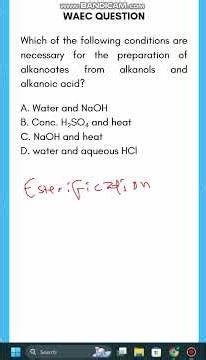 WWW.BANDICAM.COM
WAEC QUESTION
Which of the following conditions are
necessary for the preparation of
alkanoates from alkanols and
alkanoic acid?
A. Water and NaOH
B. Conc. H₂SO₄ and heat
C. NaOH and heat
D. water and aqueous HCl
Esterification
Search